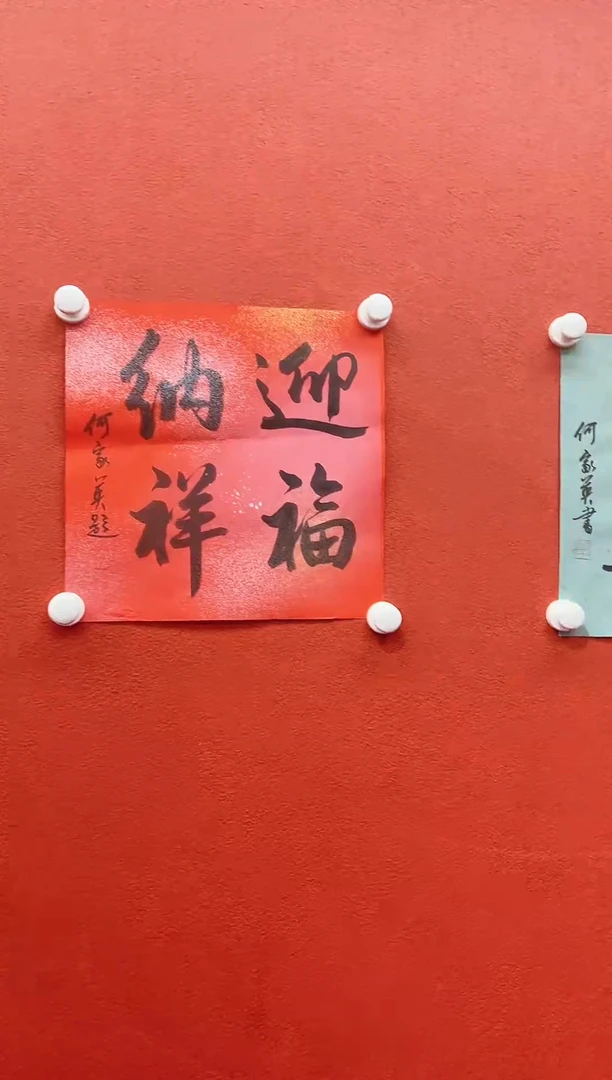 迎福
纳祥
何家英题
何家英书